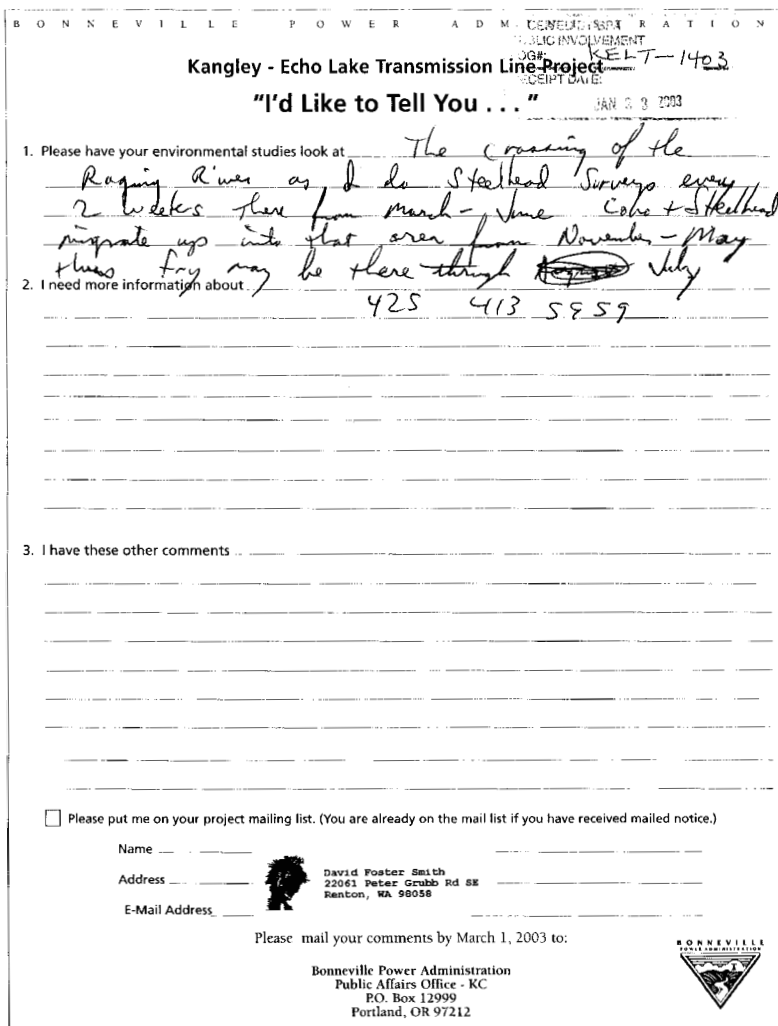 BONNEVILLE POWER ADMINISTRATION
PUBLIC INVOLVEMENT
LOG#: KELT-1403
RECEIPT DATE:
JAN 2003
Kangley - Echo Lake Transmission Line Project
"I'd Like to Tell You . . . "
1. Please have your environmental studies look at The crossing of the
Raging River as I do Steelhead Surveys every
2 weeks there from March - June Coho + Steelhead
migrate up into that area from November - May
thus fry may be there through July
2. I need more information about
425 413 5959
3. I have these other comments
Please put me on your project mailing list. (You are already on the mail list if you have received mailed notice.)
Name
David Foster Smith
Address
22061 Peter Grubb Rd SE
Renton, WA 98058
E-Mail Address
Please mail your comments by March 1, 2003 to:
Bonneville Power Administration
Public Affairs Office - KC
P.O. Box 12999
Portland, OR 97212
BONNEVILLE
POWER ADMINISTRATION